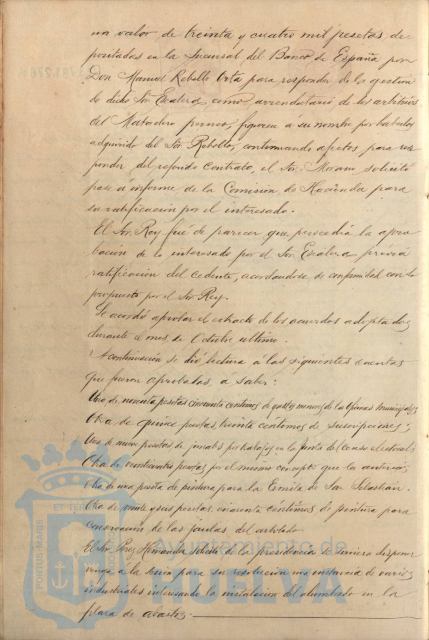 un valor de treinta y cuatro mil pesetas de-
positadas en la Sucursal del Banco de España por
Don Manuel Rebollo Orta para responder de la gestion
de dicho Sor. Escalera, como arrendatario de los arbitrios
del Matadero publico, figuren á su nombre por haberlos
adquirido del Sor. Rebollo, continuando afectos para res-
ponder del referido contrato, el Sor. Moreno solicitó
pase á informe de la Comision de Hacienda para
su ratificacion por el interesado.
El Sor. Rey fué de parecer que procedia la apro-
bacion de lo interesado por el Sor. Escalera previa
ratificacion del cedente, acordandose de conformidad con lo
propuesto por el Sor. Rey.
Se acordó aprobar el extracto de los acuerdos adoptados
durante el mes de Octubre ultimo.
A continuacion se dió lectura á las siguientes cuentas
que fueron aprobadas, a saber:
Una de noventa pesetas cincuenta centimos de gastos menores de las oficinas municipales;
Otra de quince pesetas veinte centimos de suscripciones;
Una de nueve pesetas de jornales por trabajos en la Junta del Censo electoral;
Otra de pesetas por el mismo concepto que la anterior;
Otra de una puerta de pintura para la Ermita de San Sebastian.
Otra de veinte y seis pesetas cincuenta centimos de pintura para
conservacion de las jaulas del arbolado.
El Sor. Perez Hernandez solicitó de la presidencia se sirviera disponer
venga á la mesa para su resolucion una instancia de varios
industriales interesando la instalacion del alumbrado en la
plaza de abastos.
PORTUS MARIS ET TERRAE
Ayuntamiento de
HUELVA